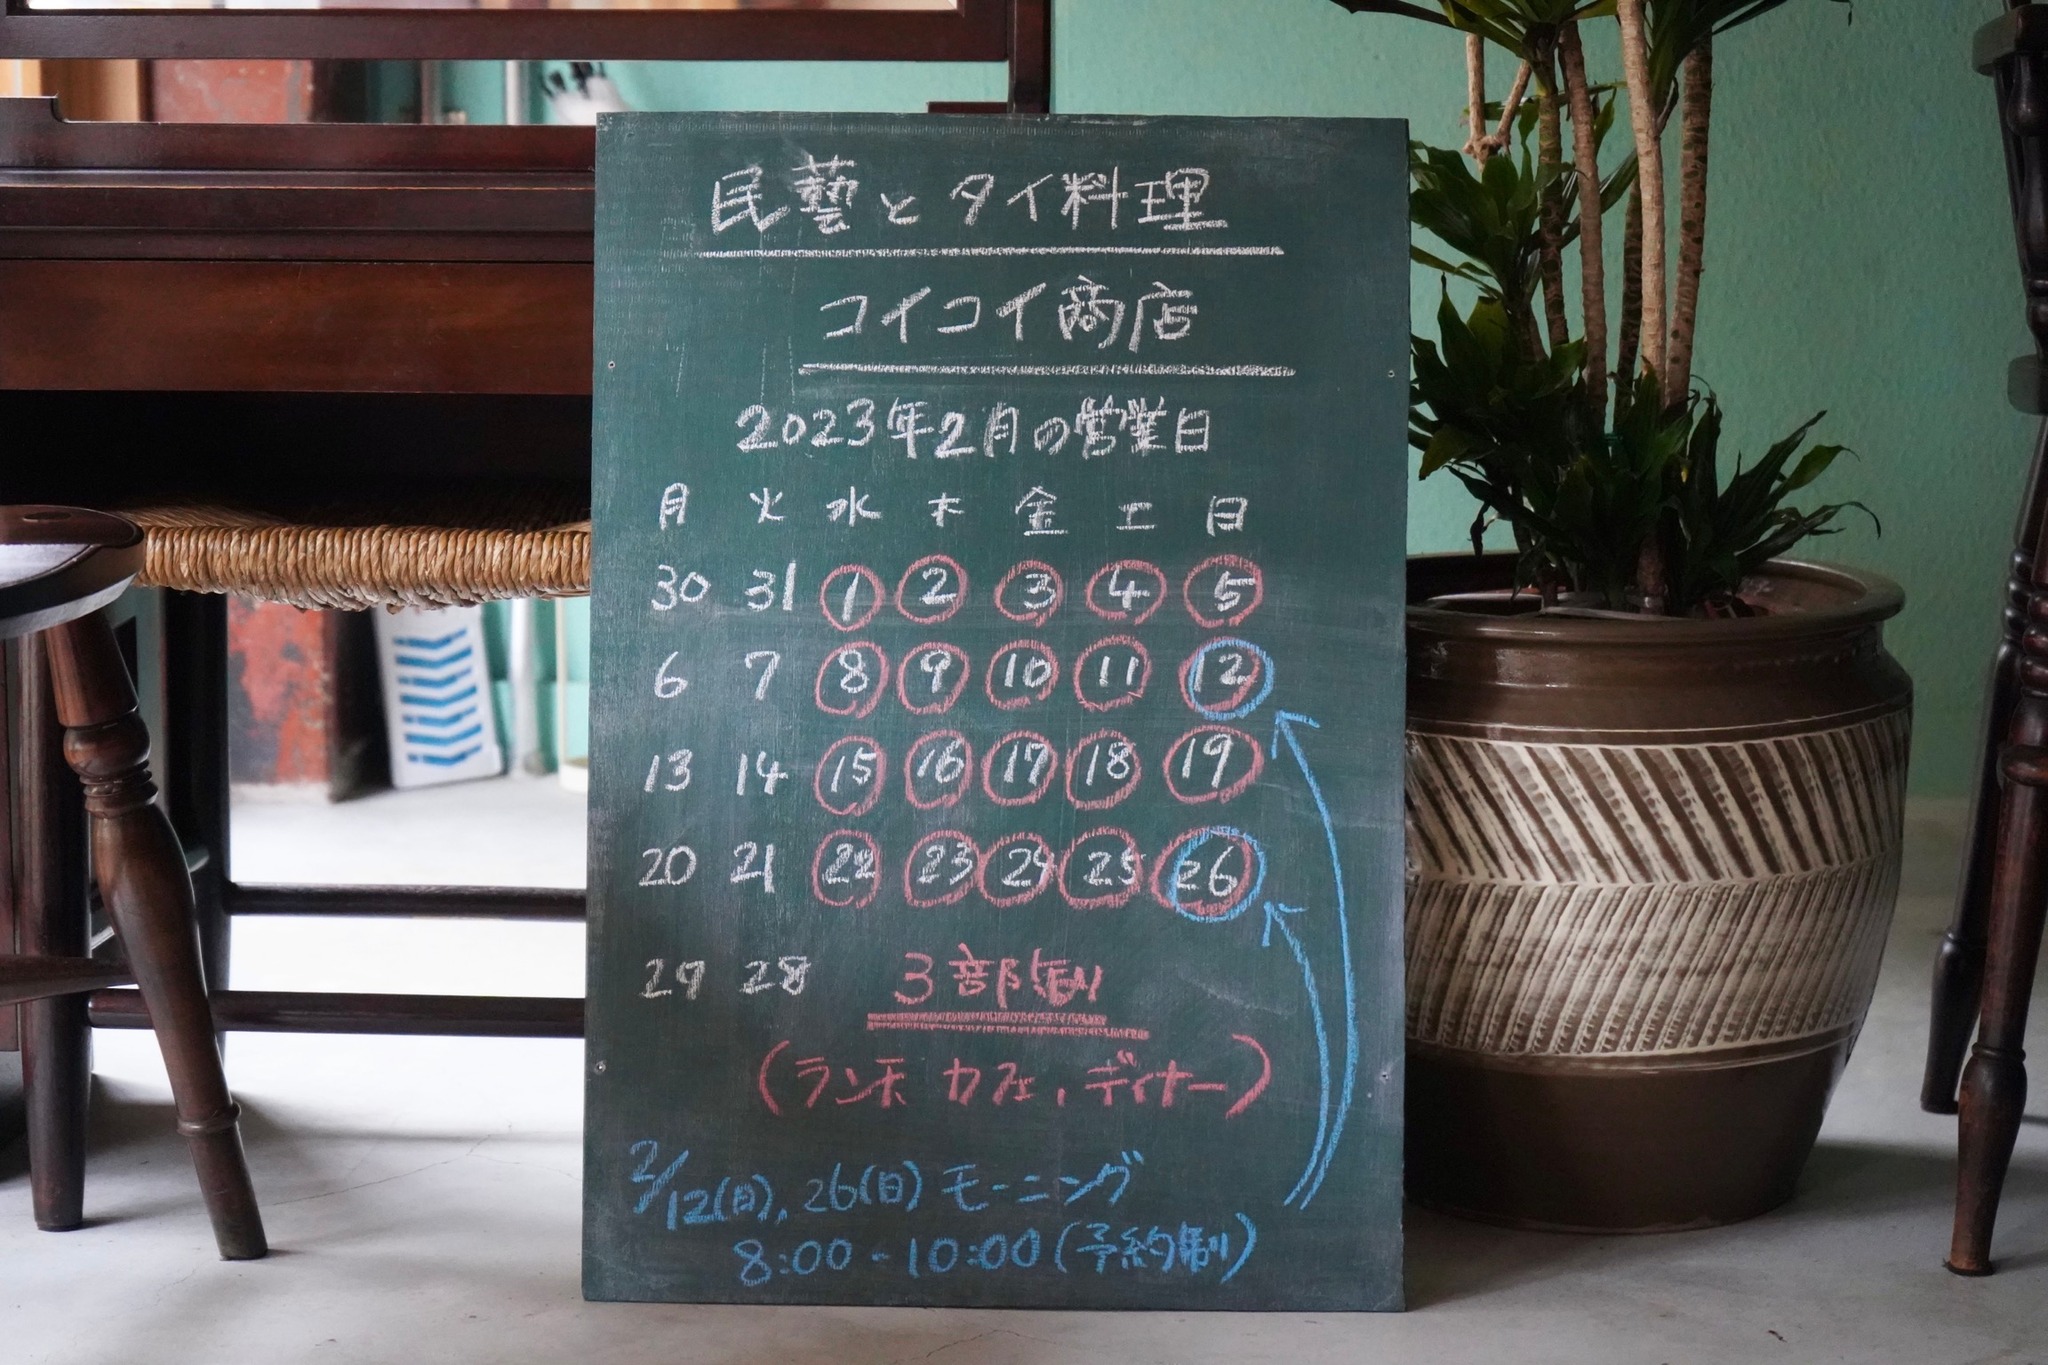 民藝とタイ料理
コイコイ商店
2023年2月の営業日
月 火 水 木 金 土 日
30 31 1 2 3 4 5
6 7 8 9 10 11 12
13 14 15 16 17 18 19
20 21 22 23 24 25 26
29 28 3部制
(ランチ、カフェ、ディナー)
2/12(日)、26(日)モーニング
8:00-10:00(予約制)